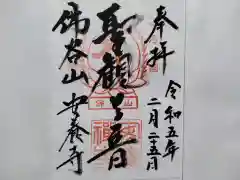 奉拝
令和五年
二月二十五日
聖観世音
佛谷山
安養寺